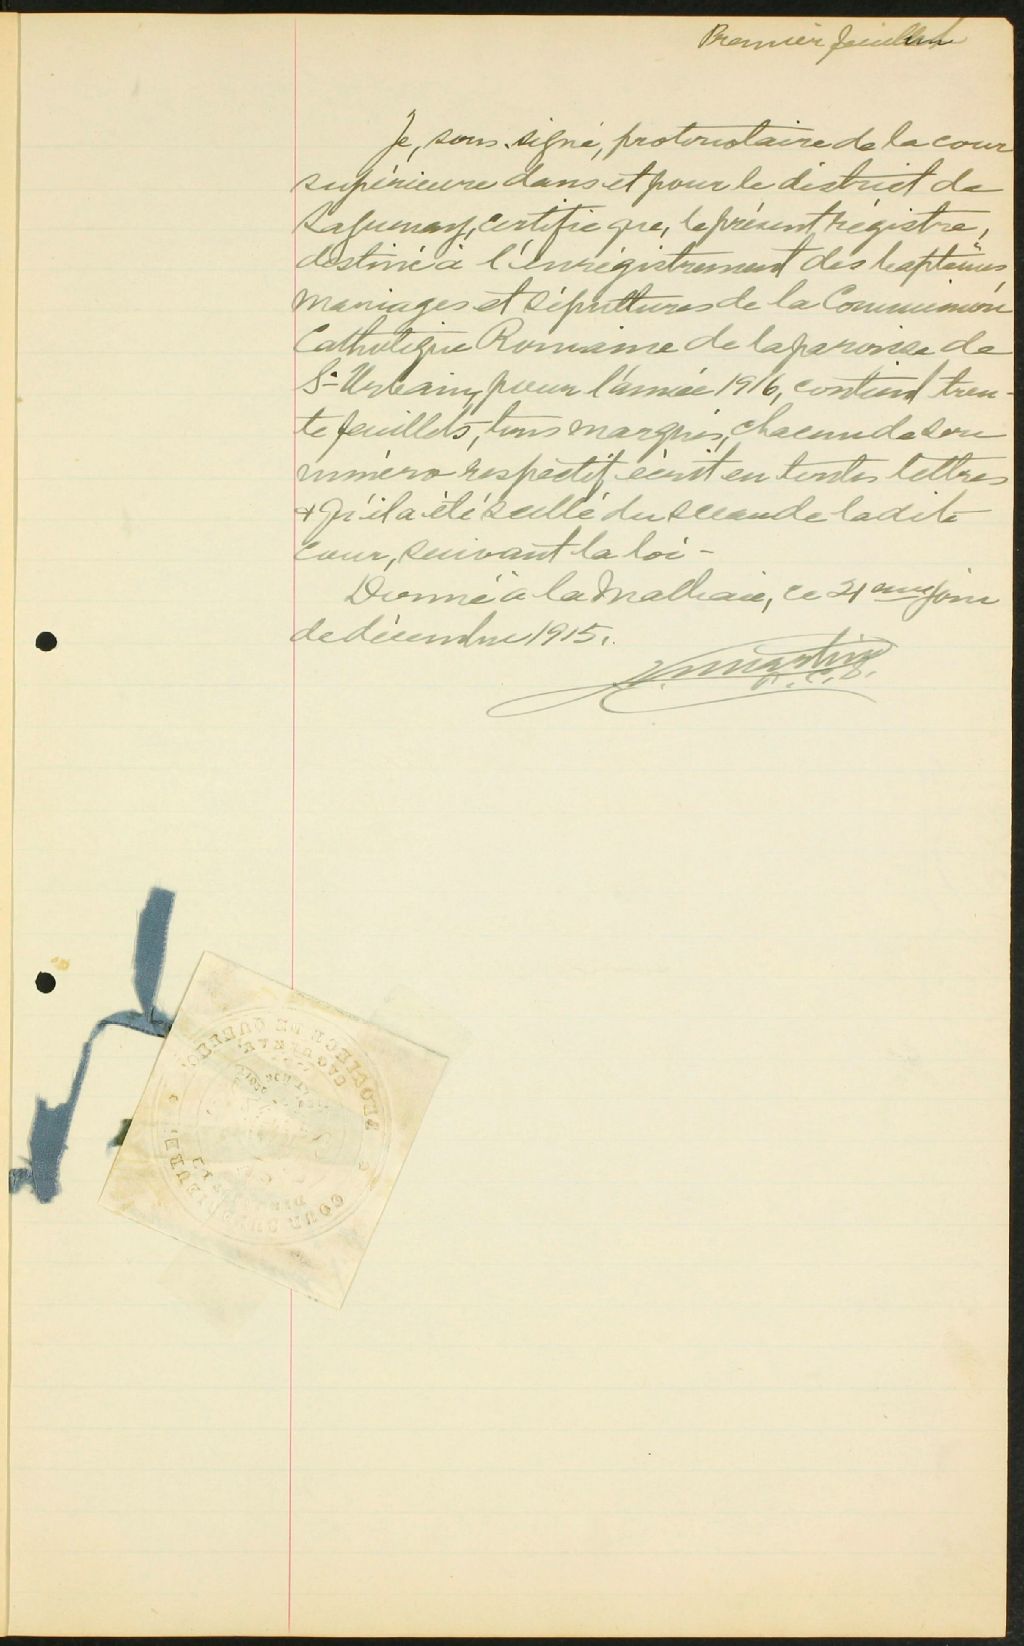 Premier feuillet
Je, sous-signé, protonotaire de la cour
supérieure dans et pour le district de
Saguenay, certifie que, le présent régistre,
destiné à l'enrégistrement des baptêmes
mariages et sépultures de la Communion
Catholique Romaine de la paroisse de
St Urbain, pour l'année 1916, contient tren-
te feuillets, tous marqués, chacun de son
numéro respectif, écrit en toutes lettres
& qu'il a été scellé du sceau de la dite
cour, suivant la loi -
Donné à la Malbaie, ce 21 eme jour
de décembre 1915.
Martin
P. C. S.
PROVINCE DE QUEBEC
SAGUENAY
DISTRICT
COUR SUPERIEURE